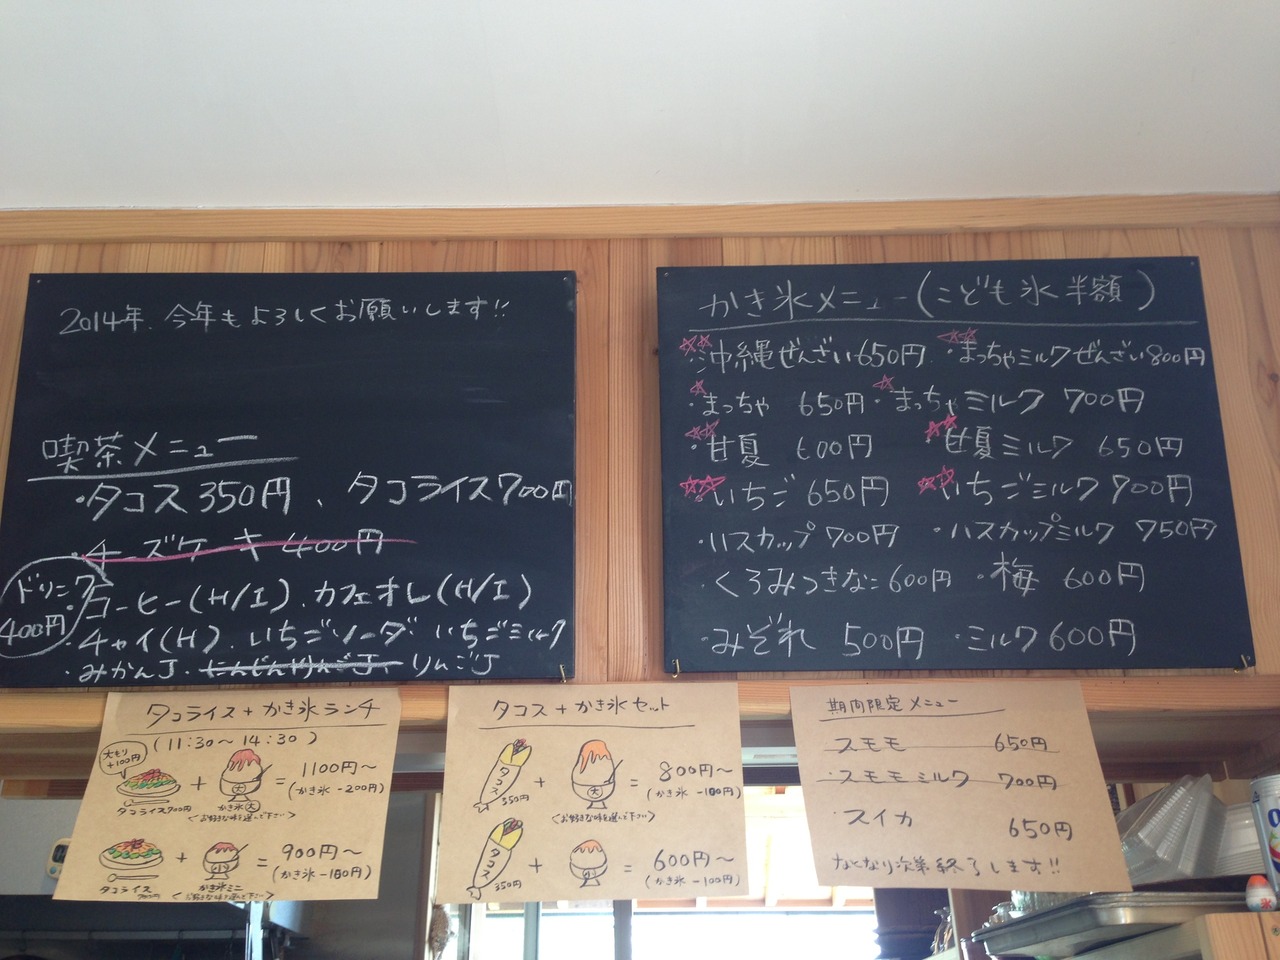 2014年、今年もよろしくお願いします!!
喫茶メニュー
・タコス350円、タコライス700円
・チーズケーキ 400円
ドリンク
400円
・コーヒー(H/I)、カフェオレ(H/I)
・チャイ(H)、いちごソーダ いちごミルク
・みかんJ・にんじんりんごJ・りんごJ
かき氷メニュー(こども氷半額)
・沖縄ぜんざい650円 ・まっちゃミルクぜんざい800円
・まっちゃ 650円 ・まっちゃミルク 700円
・甘夏 600円 甘夏ミルク 650円
・いちご 650円 ・いちごミルク 700円
・ハスカップ 700円 ・ハスカップミルク 750円
・くろみつきなこ600円 ・梅 600円
・みぞれ 500円 ・ミルク600円
タコライス+かき氷ランチ
(11:30〜14:30)
大もり
+100円
+ = 1100円〜
(かき氷 -200円)
大
タコライス700円 かき氷(大)
<お好きな味を選んで下さい>
+ = 900円〜
(かき氷 -100円)
小
タコライス
700円
かき氷ミニ
<お好きな味を選んで下さい>
タコス+かき氷セット
タコス
350円
+ 大 = 800円〜
(かき氷 -100円)
<お好きな味を選んで下さい>
タコス
350円
+ 小 = 600円〜
(かき氷 -100円)
期間限定メニュー
・スモモ 650円
・スモモミルク 700円
・スイカ 650円
なくなり次第終了します!!